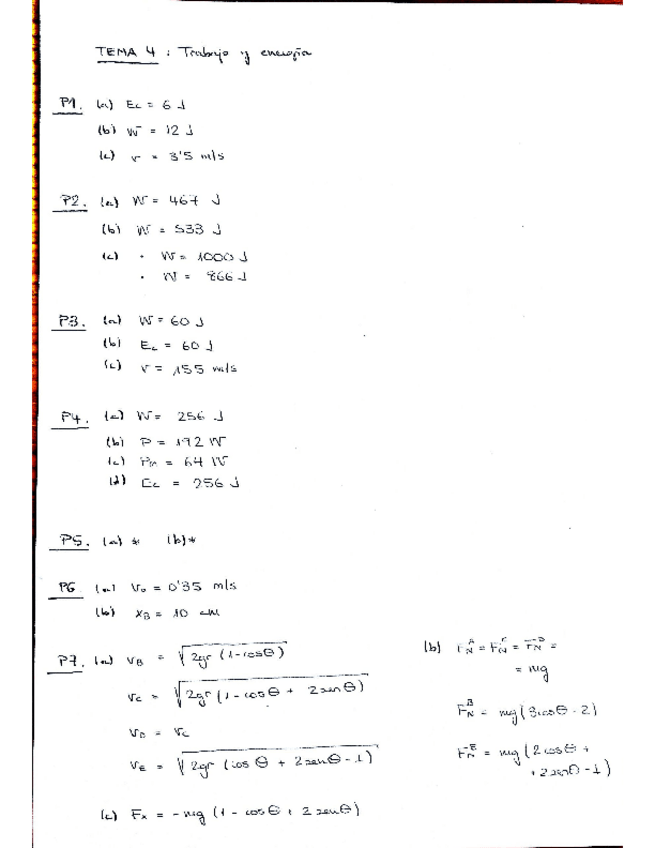 TEMA 4 : Trabajo y energía
P1. (a) Ec = 6 J
(b) W = 12 J
(c) v = 3'5 m/s
P2. (a) W = 467 J
(b) W = 533 J
(c) · W = 1000 J
· W = 866 J
P3. (a) W = 60 J
(b) Ec = 60 J
(c) v = 155 m/s
P4. (a) W = 256 J
(b) P = 192 W
(c) Pm = 64 W
(d) Ec = 256 J
P5. (a) * (b) *
P6 (a) v₀ = 0'35 m/s
(b) xB = 10 cm
P7. (a) vB = √2gr (1-cosθ)
vC = √2gr (1 - cosθ + 2senθ)
vD = vC
vE = √2gr (cosθ + 2senθ - 1)
(c) Fx = -mg (1 - cosθ + 2senθ)
(b) F_N^A = F_N^C = F_N^D =
= mg
F_N^B = mg (3cosθ - 2)
F_N^E = mg (2cosθ +
+ 2senθ - 1)